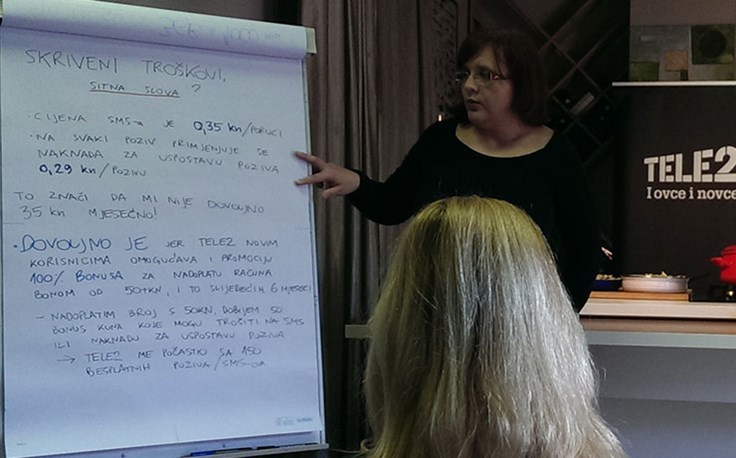 SKRIVENI TROŠKOVI,
SITNA SLOVA?
• CIJENA SMS-a JE 0,35 kn/PORUCI
• NA SVAKI POZIV PRIMJENJUJE SE
NAKNADA ZA USPOSTAVU POZIVA
0,29 kn/POZIVU
TO ZNAČI DA MI NIJE DOVOLJNO
35 kn MJESEČNO!
• DOVOLJNO JE JER TELE2 NOVIM
KORISNICIMA OMOGUĆAVA I PROMOCIJU
100% BONUSA ZA NADOPLATU RAČUNA
BONOM OD 50+KN, I TO SLIJEDEĆIH 6 MJESECI
- NADOPLATIM BROJ S 50KN, DOBIJEM 50
BONUS KUNA KOJE MOGU TROŠITI NA SMS
ILI NAKNADU ZA USPOSTAVU POZIVA
→ TELE2 ME POČASTIO SA 150
BESPLATNIH POZIVA/SMS-ova
TELE2
I ovce i novce